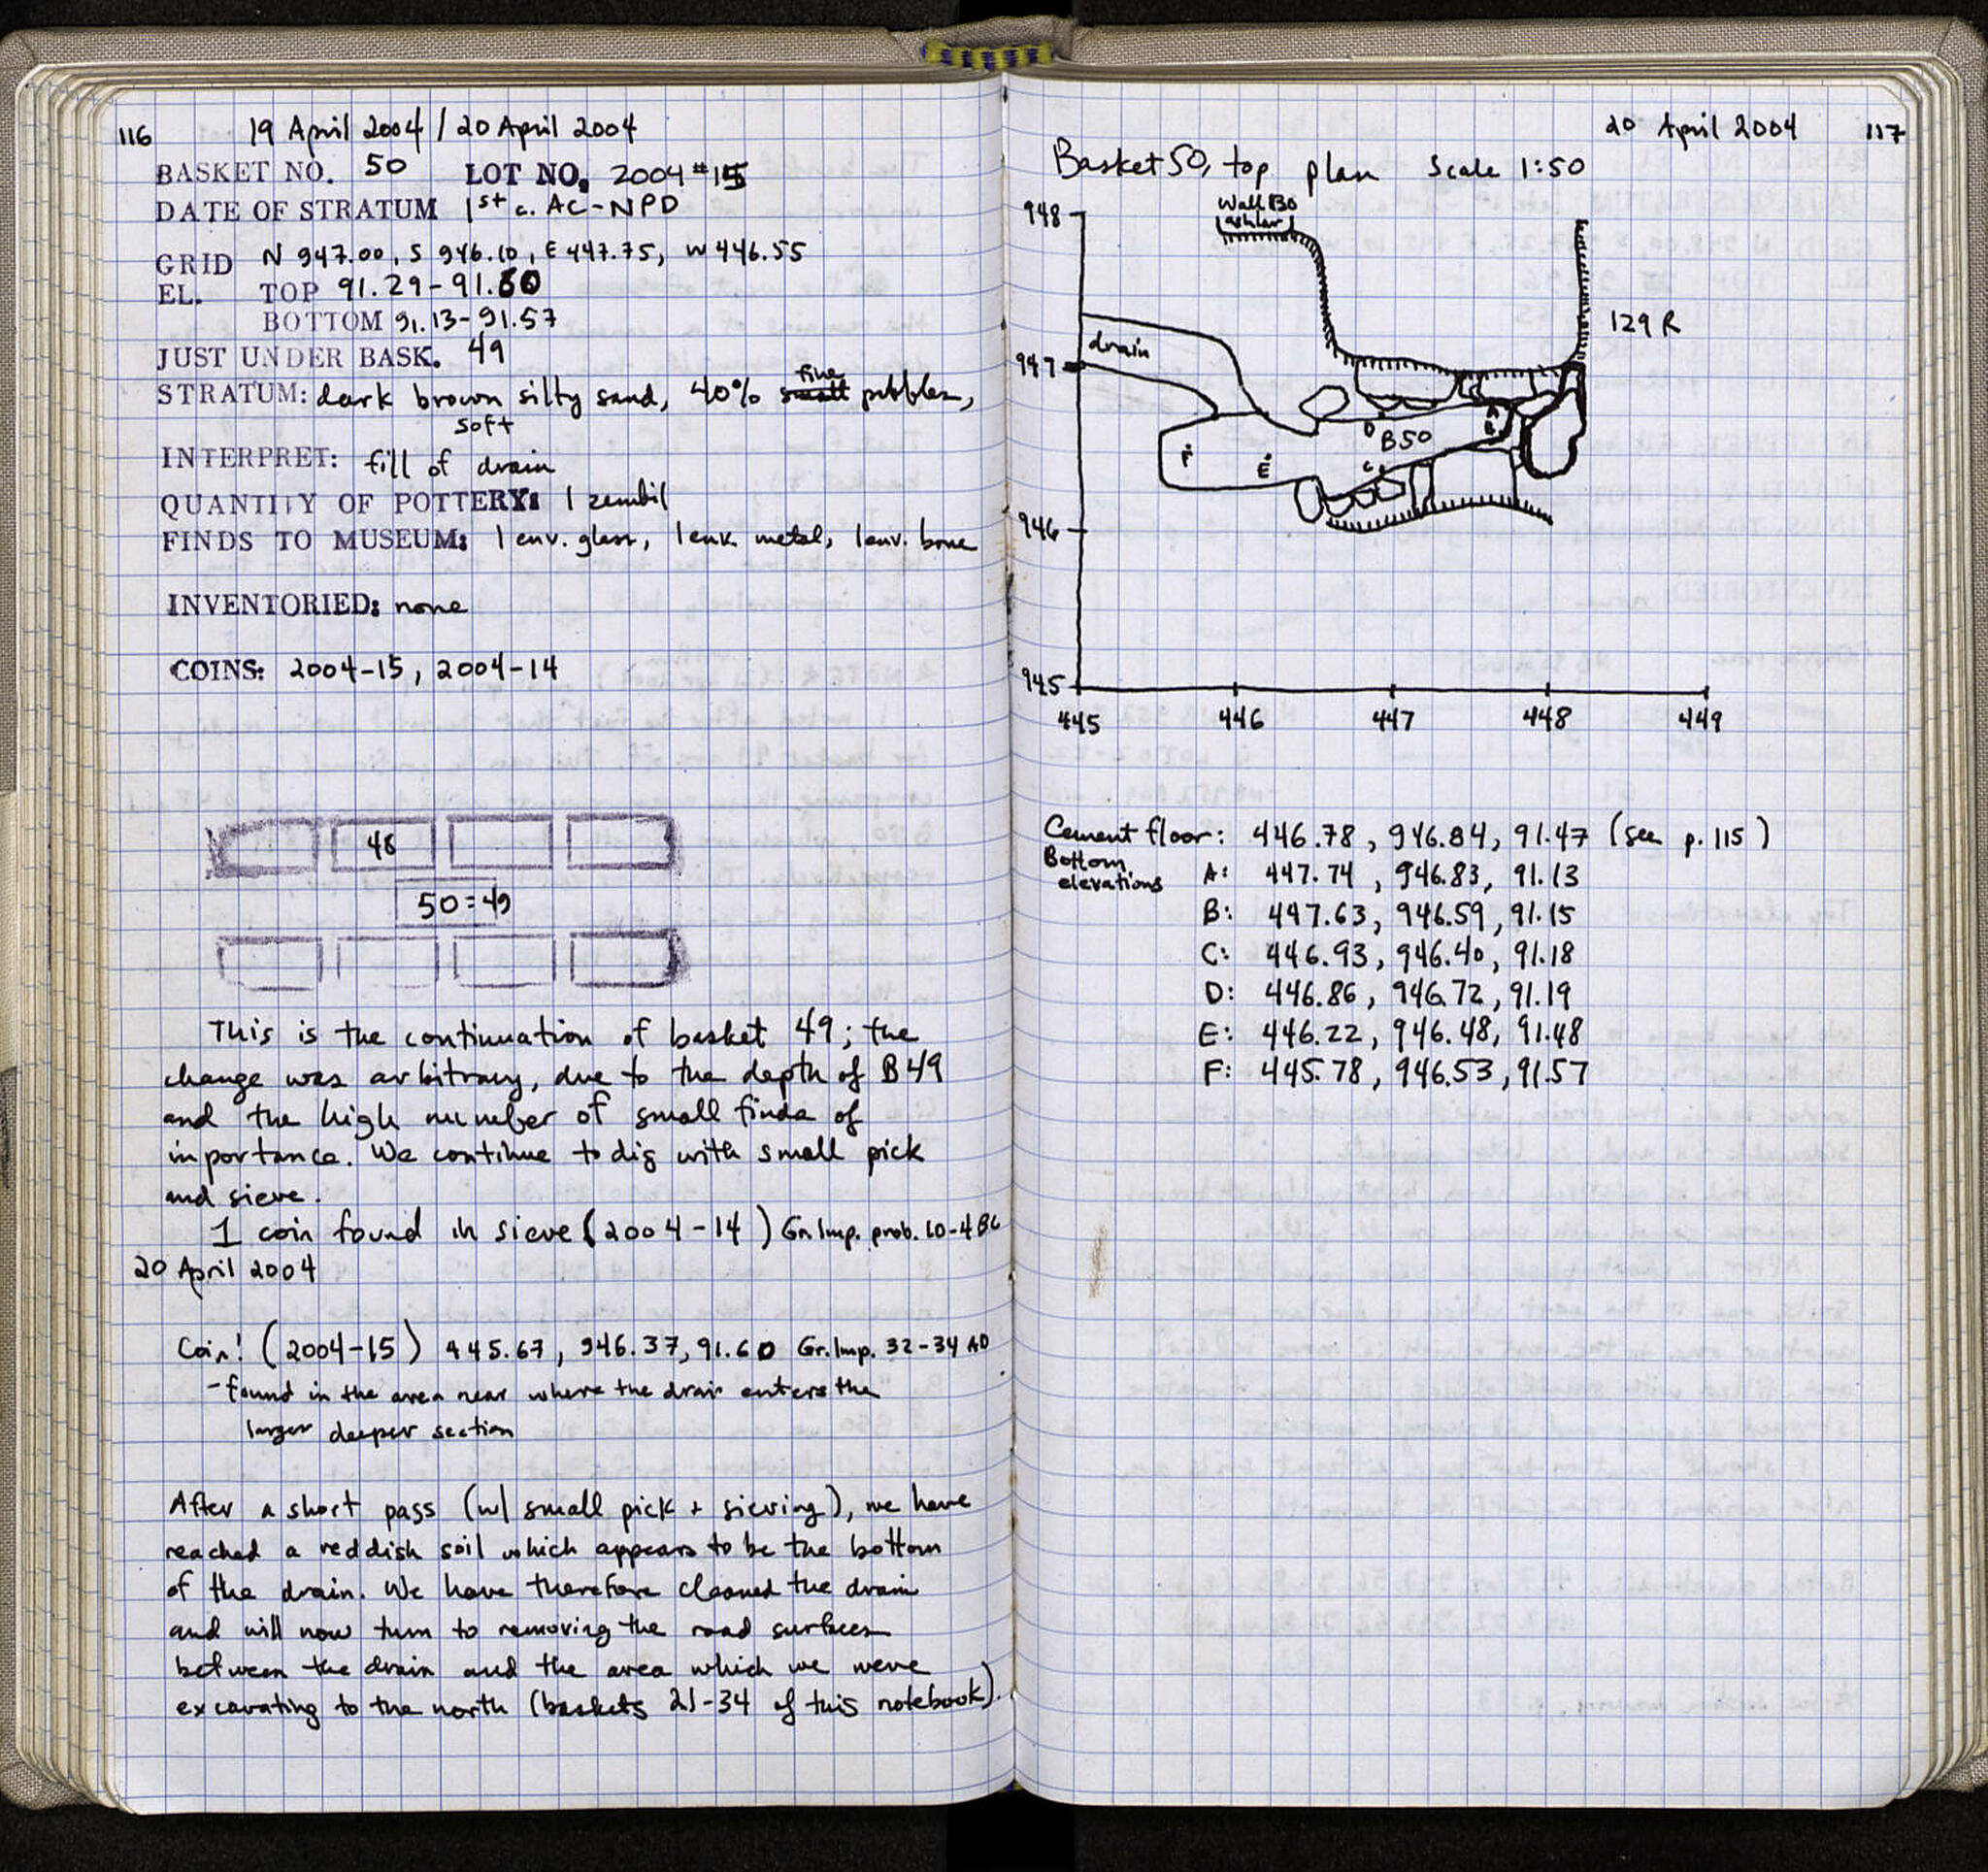 116 19 April 2004 / 20 April 2004
BASKET NO. 50 LOT NO. 2004 #15
DATE OF STRATUM 1st c. AC-NPD
GRID N 947.00, S 946.10, E 447.75, W 446.55
EL. TOP 91.29-91.60
BOTTOM 91.13-91.57
JUST UNDER BASK. 49
STRATUM: dark brown silty sand, 40% small fine pebbles,
soft
INTERPRET: fill of drain
QUANTITY OF POTTERY: 1 zembil
FINDS TO MUSEUM: 1 env. glass, 1 env. metal, 1 env. bone
INVENTORIED: none
COINS: 2004-15, 2004-14
48
50=49
This is the continuation of basket 49; the
change was arbitrary, due to the depth of B49
and the high number of small finds of
importance. We continue to dig with small pick
and sieve.
1 coin found in sieve (2004-14) Gr. Imp. prob. 10-4 BC
20 April 2004
Coin! (2004-15) 445.67, 946.37, 91.60 Gr. Imp. 32-34 AD
- found in the area near where the drain enters the
larger deeper section
After a short pass (w/ small pick + sieving), we have
reached a reddish soil which appears to be the bottom
of the drain. We have therefore cleaned the drain
and will now turn to removing the road surfaces
between the drain and the area which we were
excavating to the north (baskets 21-34 of this notebook).
20 April 2004 117
Basket 50, top plan Scale 1:50
Wall 130
ashlar
948
129 R
drain
947
A
D B50 B
F E C
946
945
445 446 447 448 449
Cement floor: 446.78, 946.84, 91.47 (see p. 115)
Bottom
elevations A: 447.74, 946.83, 91.13
B: 447.63, 946.59, 91.15
C: 446.93, 946.40, 91.18
D: 446.86, 946.72, 91.19
E: 446.22, 946.48, 91.48
F: 445.78, 946.53, 91.57